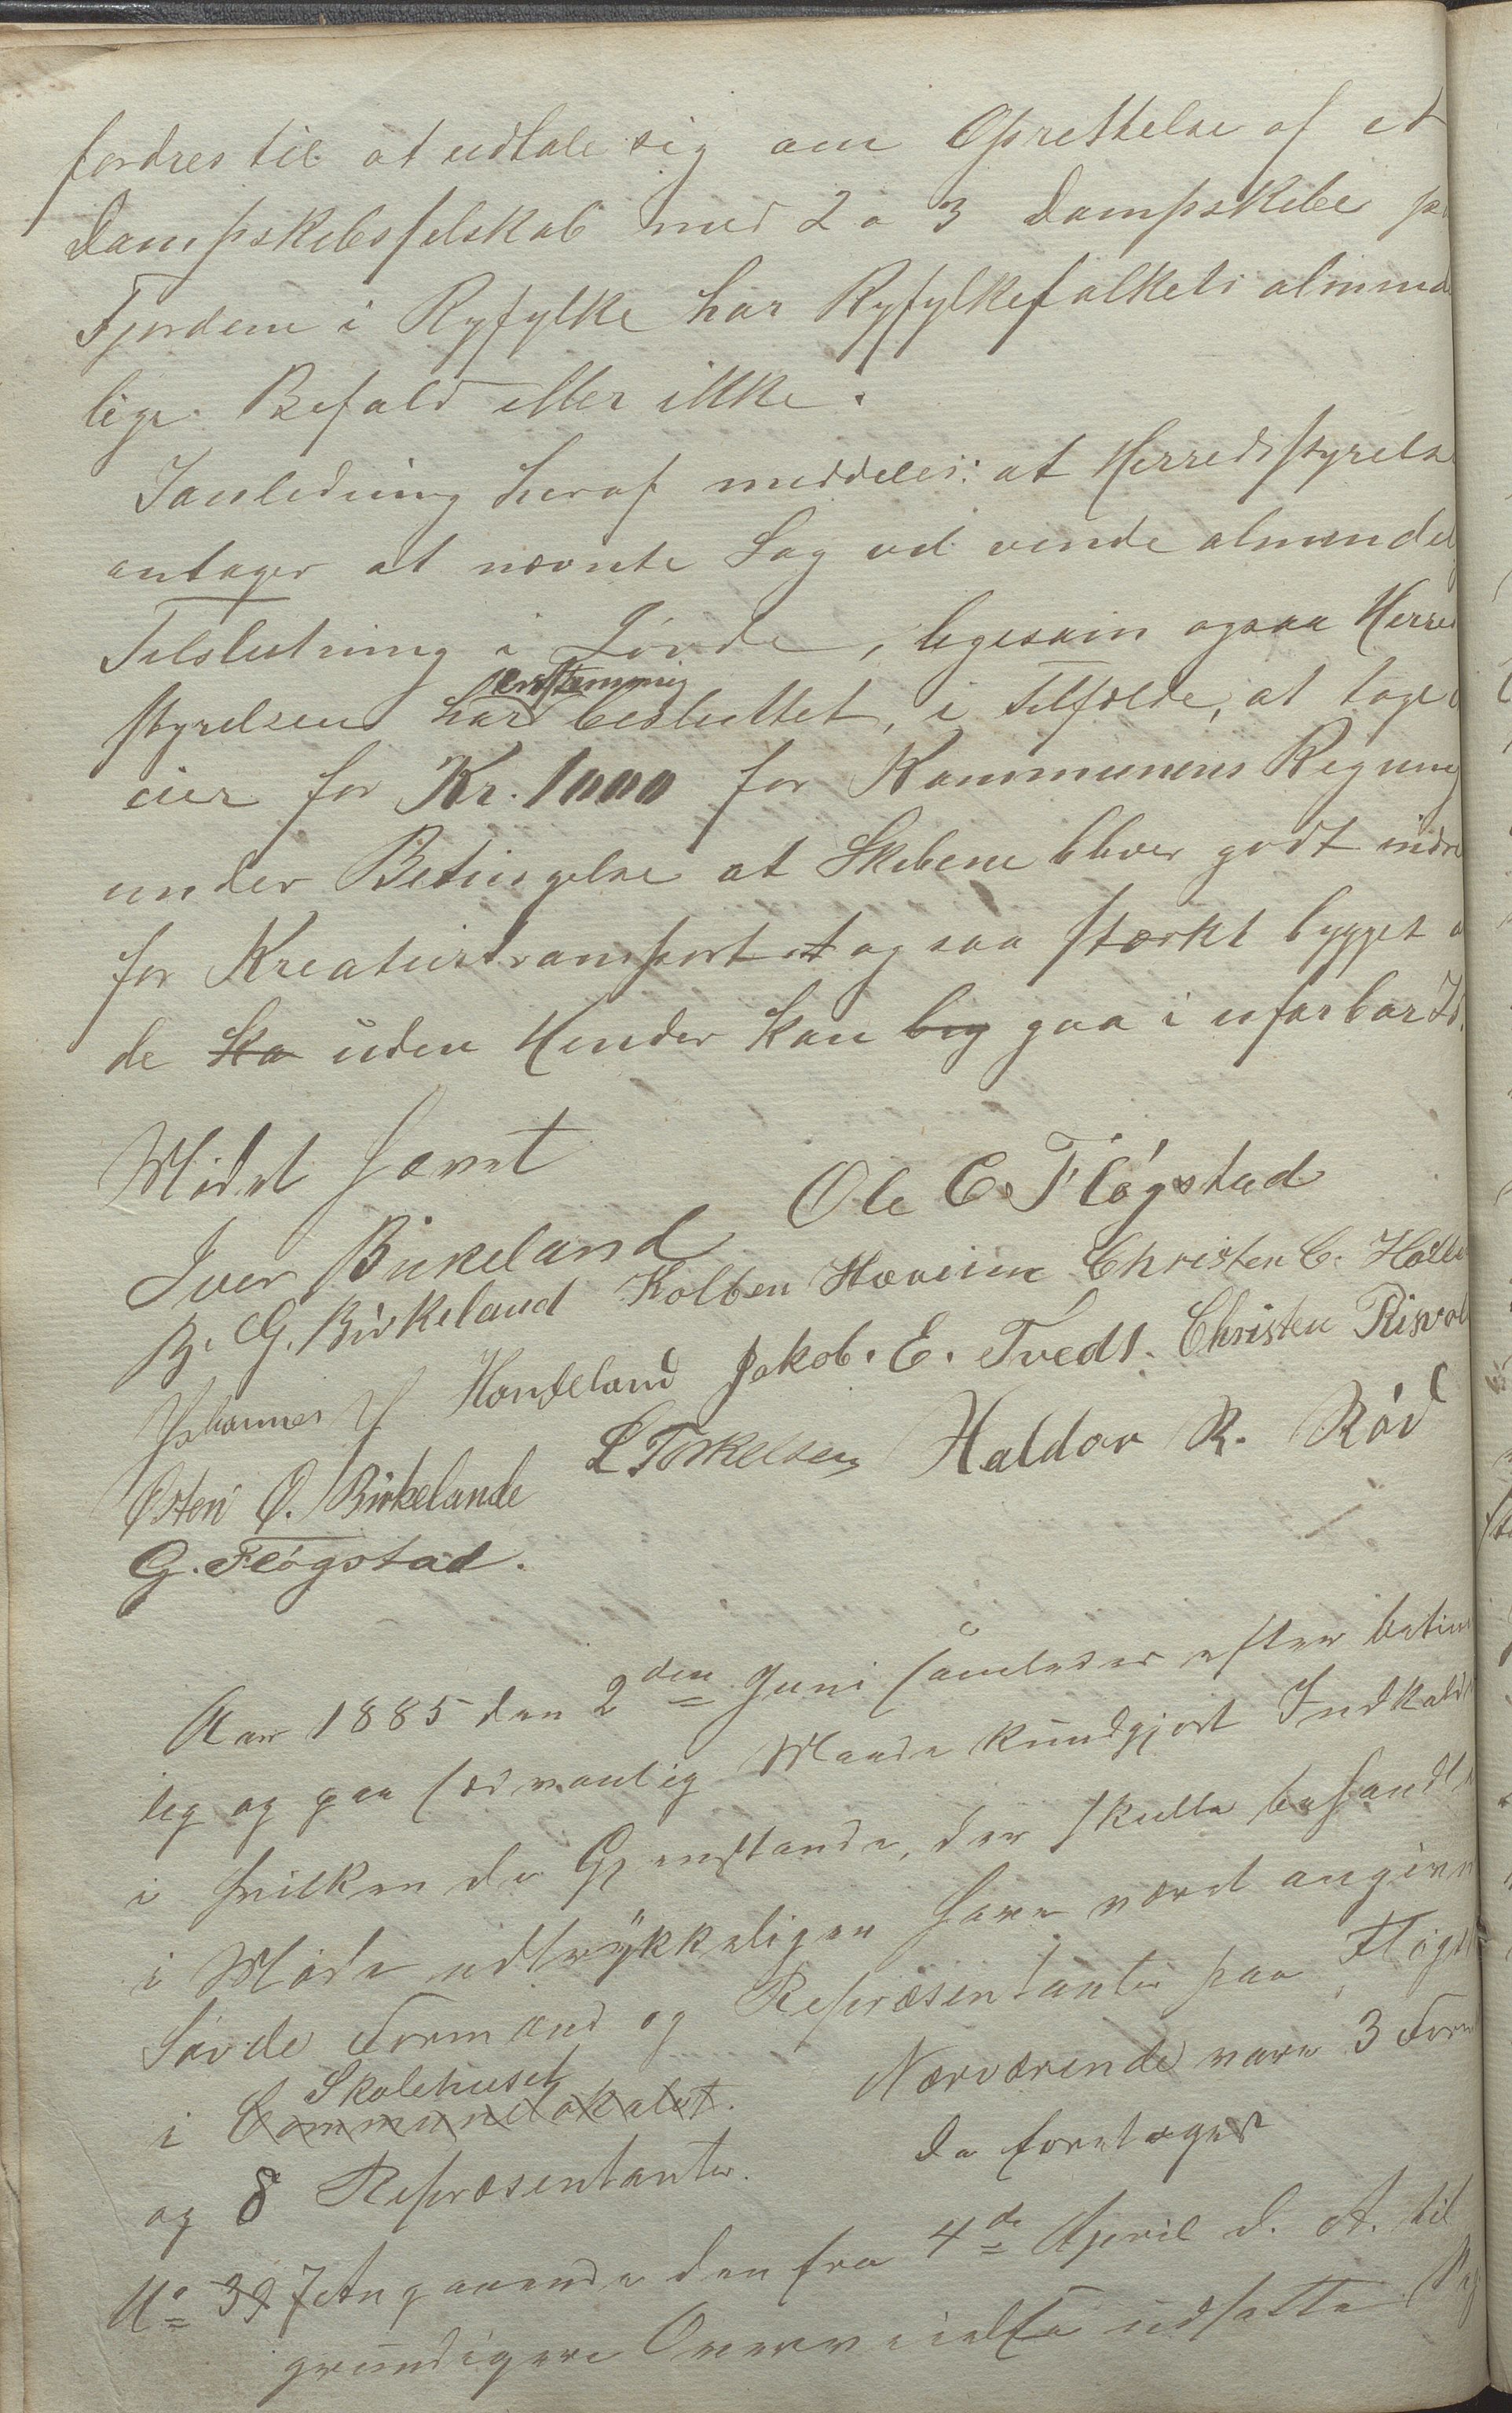 fordres til at udtale sig om Oprettelse af et
Dampskibsselskab med 2 a 3 Dampskibe p
Fjordene i Ryfylke har Ryfylkefolkets almind
lige Bifald eller ikke.
I anledning heraf meddeles: at Herredsstyrels
antager at nævnte Sag vil vinde almindel
Tilslutning i Søvde, ligesom ogsaa Herred
styrelsen har enstemmig besluttet, i Tilfælde, at tage
for Kr. 1000 for Kommunens Regning
under Betingelse at Skibene bliver godt indre
for Kreaturtransport og saa stærkt bygget
de ska uden Hinder kan byg gaa i ufarbar Is.
Mødet hævet
Ole C. Fløgstad
Iver Birkeland
B. G. Birkeland Kolben Hæreim Christen C. Halle
Johannes J Handeland Jakob. E. Tvedt. Christen Risvol
Østen O. Birkelande L Torkelsen Haldor R. Rød
G. Fløgstad.
Aar 1885 den 2den Juni samledes efter betime
lig og paa sædvanlig Maade kundgjort Indkalds
i hvilken de Gjenstande, der skulle behandle
i Møde udtrykkeligen have været angivn
Søvde Formænd og Repræsentanter paa Fløgst
i Communelokalet. Skolehuset Nærværende vare 3 Form
og 8 Repræsentanter. Da foretages
No 39 7 Angaaende den fra 4de April d. A. til
grundigere Overveielse udsatte